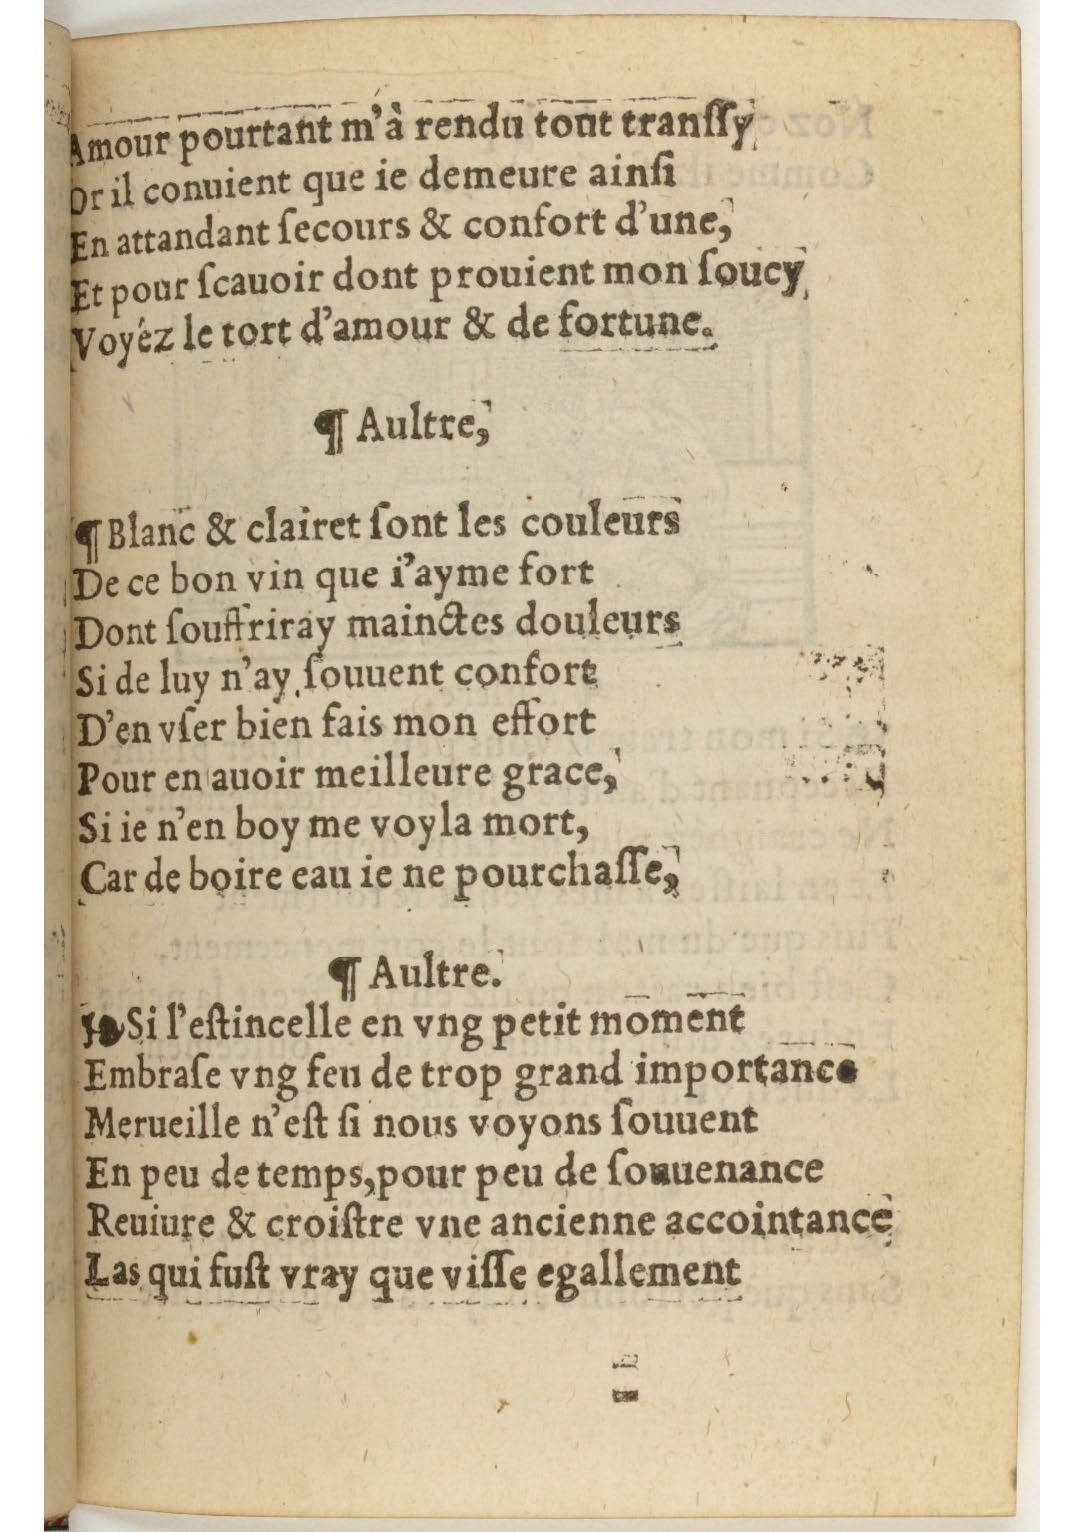 Amour pourtant m'à rendu tout tranſſy,
Or il conuient que ie demeure ainſi
En attandant ſecours & confort d'une,
Et pour ſcauoir dont prouient mon ſoucy,
Voyéz le tort d'amour & de fortune.
¶ Aultre,
¶ Blanc & clairet ſont les couleurs
De ce bon vin que i'ayme fort
Dont ſouffriray mainctes douleurs
Si de luy n'ay ſouuent confort
D'en vſer bien fais mon effort
Pour en auoir meilleure grace,
Si ie n'en boy me voyla mort,
Car de boire eau ie ne pourchaſſe,
¶ Aultre.
❧ Si l'eſtincelle en vng petit moment
Embraſe vng feu de trop grand importance
Merueille n'eſt ſi nous voyons ſouuent
En peu de temps,pour peu de ſouuenance
Reuiure & croiſtre vne ancienne accointance
Las qui fuſt vray que viſſe egallement